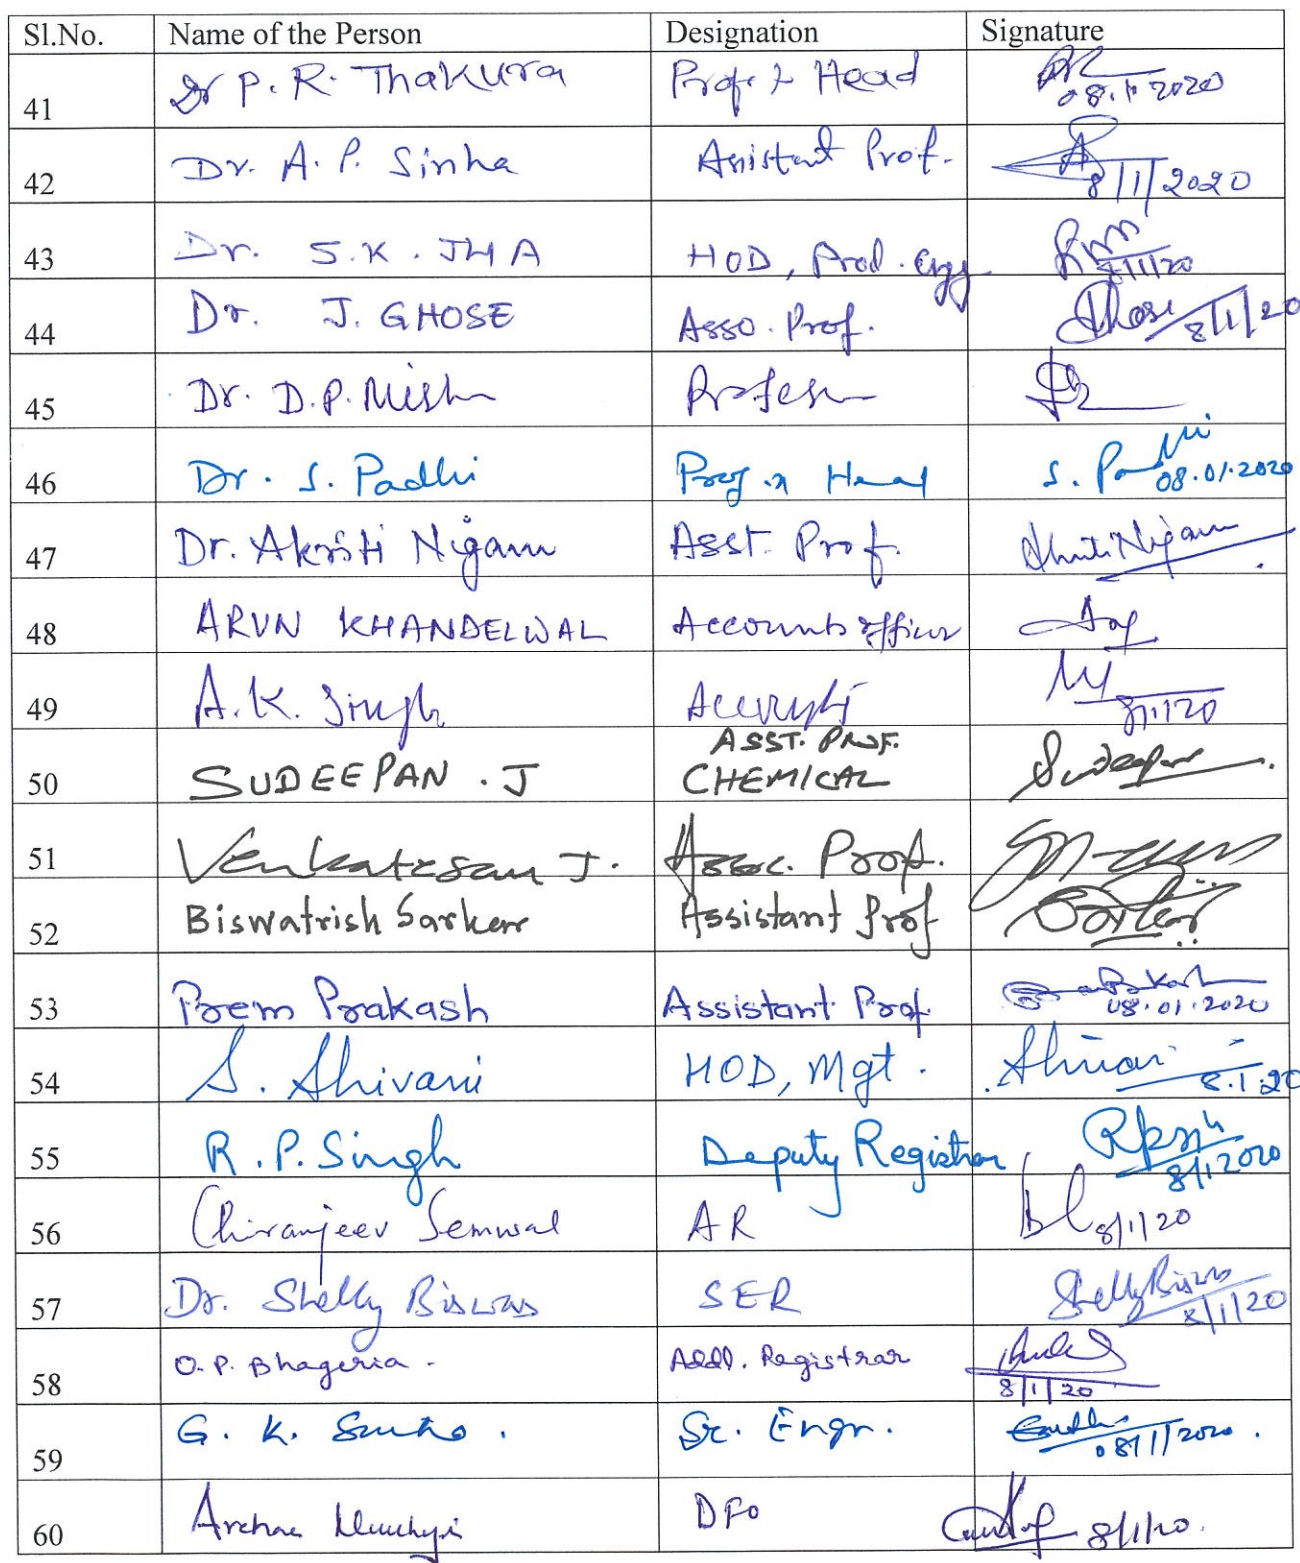 Sl.No. Name of the Person Designation Signature
41 Dr P. R. Thakura Prof. & Head 08.1.2020
42 Dr. A. P. Sinha Assistant Prof. 8/1/2020
43 Dr. S.K. JHA HOD, Prod. Engg 8/1/20
44 Dr. J. GHOSE Asso. Prof. Ghose 8/1/20
45 Dr. D.P. Mishra Professor
46 Dr. S. Padhi Prof. & Head S. Padhi 08.01.2020
47 Dr. Akriti Nigam Asst. Prof. Akriti Nigam
48 ARUN KHANDELWAL Accounts officer
49 A.K. Singh 8/1/20
50 SUDEEPAN . J ASST. PROF.
CHEMICAL Sudeepan
51 Venkatesan J. Assoc. Prof.
52 Biswatrish Sarkar Assistant Prof Sarkar
53 Prem Prakash Assistant Prof. Prakash 08.01.2020
54 S. Shivani HOD, Mgt. Shivani 8.1.20
55 R.P. Singh Deputy Registrar 8/1/2020
56 Chiranjeev Semwal AR 8/1/20
57 Dr. Shelly Biswas SER Shelly Biswas 8/1/20
58 O.P. Bhageria. Addl. Registrar 8/1/20
59 G. K. Sr. Engr. 08/1/2020.
60 DFO 8/1/20.